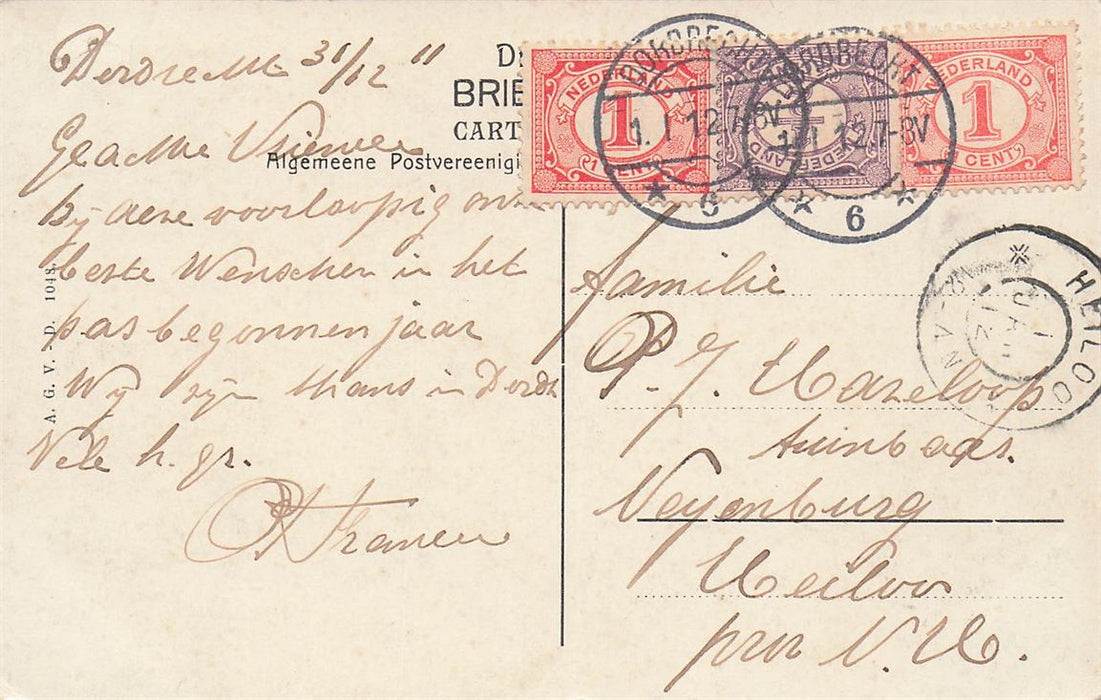 Dordrecht 31/12 11
Geachte Vrienden
bij deze voorloopig onze
beste Wenschen in het
pas begonnen jaar
Wij zijn thans in Dordt
Vele h. gr.
DE
BRIE
CART
Algemeene Postvereenigi
NEDERLAND
1
1 CENT
NEDERLAND
NEDERLAND
1
1 CENT
DORDRECHT
1. 1 12.7-8V
6
DORDRECHT
1. 1 12.7-8V
6
HEILOO
1 JAN 12
8-9 VM
Familie
P. J. Hazeloop
tuinbaas
Neyenburg
Heiloo
prov N. H.
A. G. V. - D. 1048.